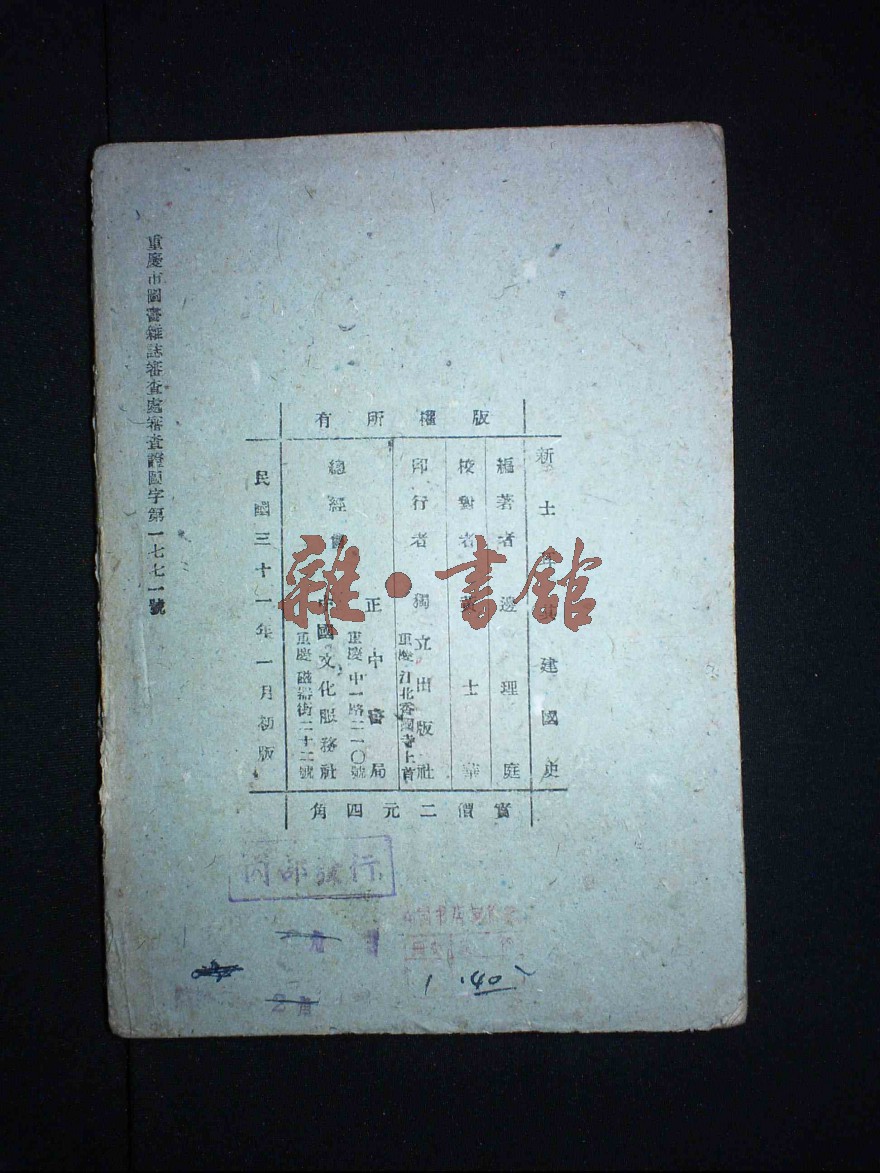 版權所有
新土耳其建國史
編著者 邊理庭
校對者 黃士華
印行者 獨立出版社
重慶江北香國寺上首
正中書局
重慶中一路二一〇號
總經售
中國文化服務社
重慶磁器街二十二號
民國三十一年一月初版
實價二元四角
重慶市圖書雜誌審查處審查證圖字第一七七一號
雜·書館
内部发行